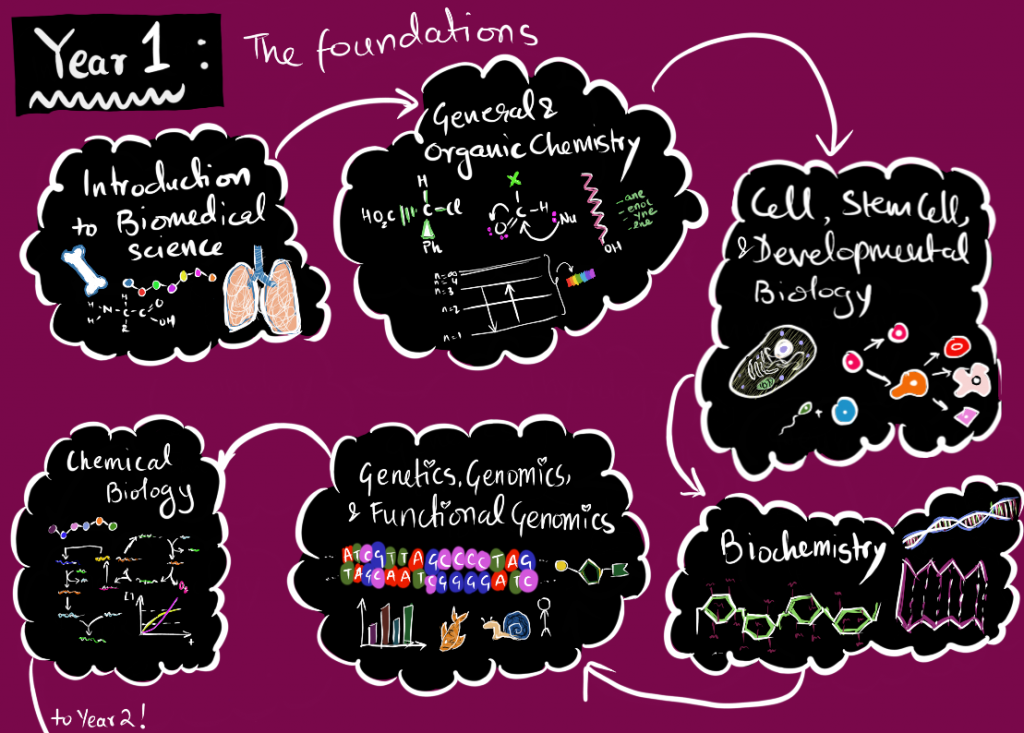 Year 1 :
The foundations
Introduction
to Biomedical
science
H
H
N
H
C
Z
C
O
OH
General &
Organic Chemistry
H
HO₂C
C
Cl
Ph
X
C-H
O
:Nu
OH
-ane
-enol
-yne
-ene
n=∞
n=4
n=3
n=2
n=1
Cell, Stem Cell,
& Developmental
Biology
+
Biochemistry
Genetics, Genomics,
& Functional Genomics
ATCGTTAGCCCCTAG
TAGCAATCGGGGATC
Chemical
Biology
[]
t
to Year 2!